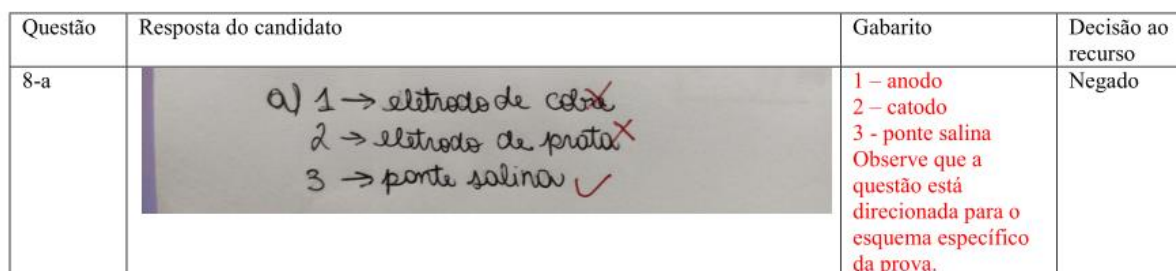 Questão
Resposta do candidato
Gabarito
Decisão ao
recurso
8-a
a) 1 → eletrodo de cobre
2 → eletrodo de prata
3 → ponte salina
1 – anodo
2 – catodo
3 - ponte salina
Observe que a
questão está
direcionada para o
esquema específico
da prova.
Negado